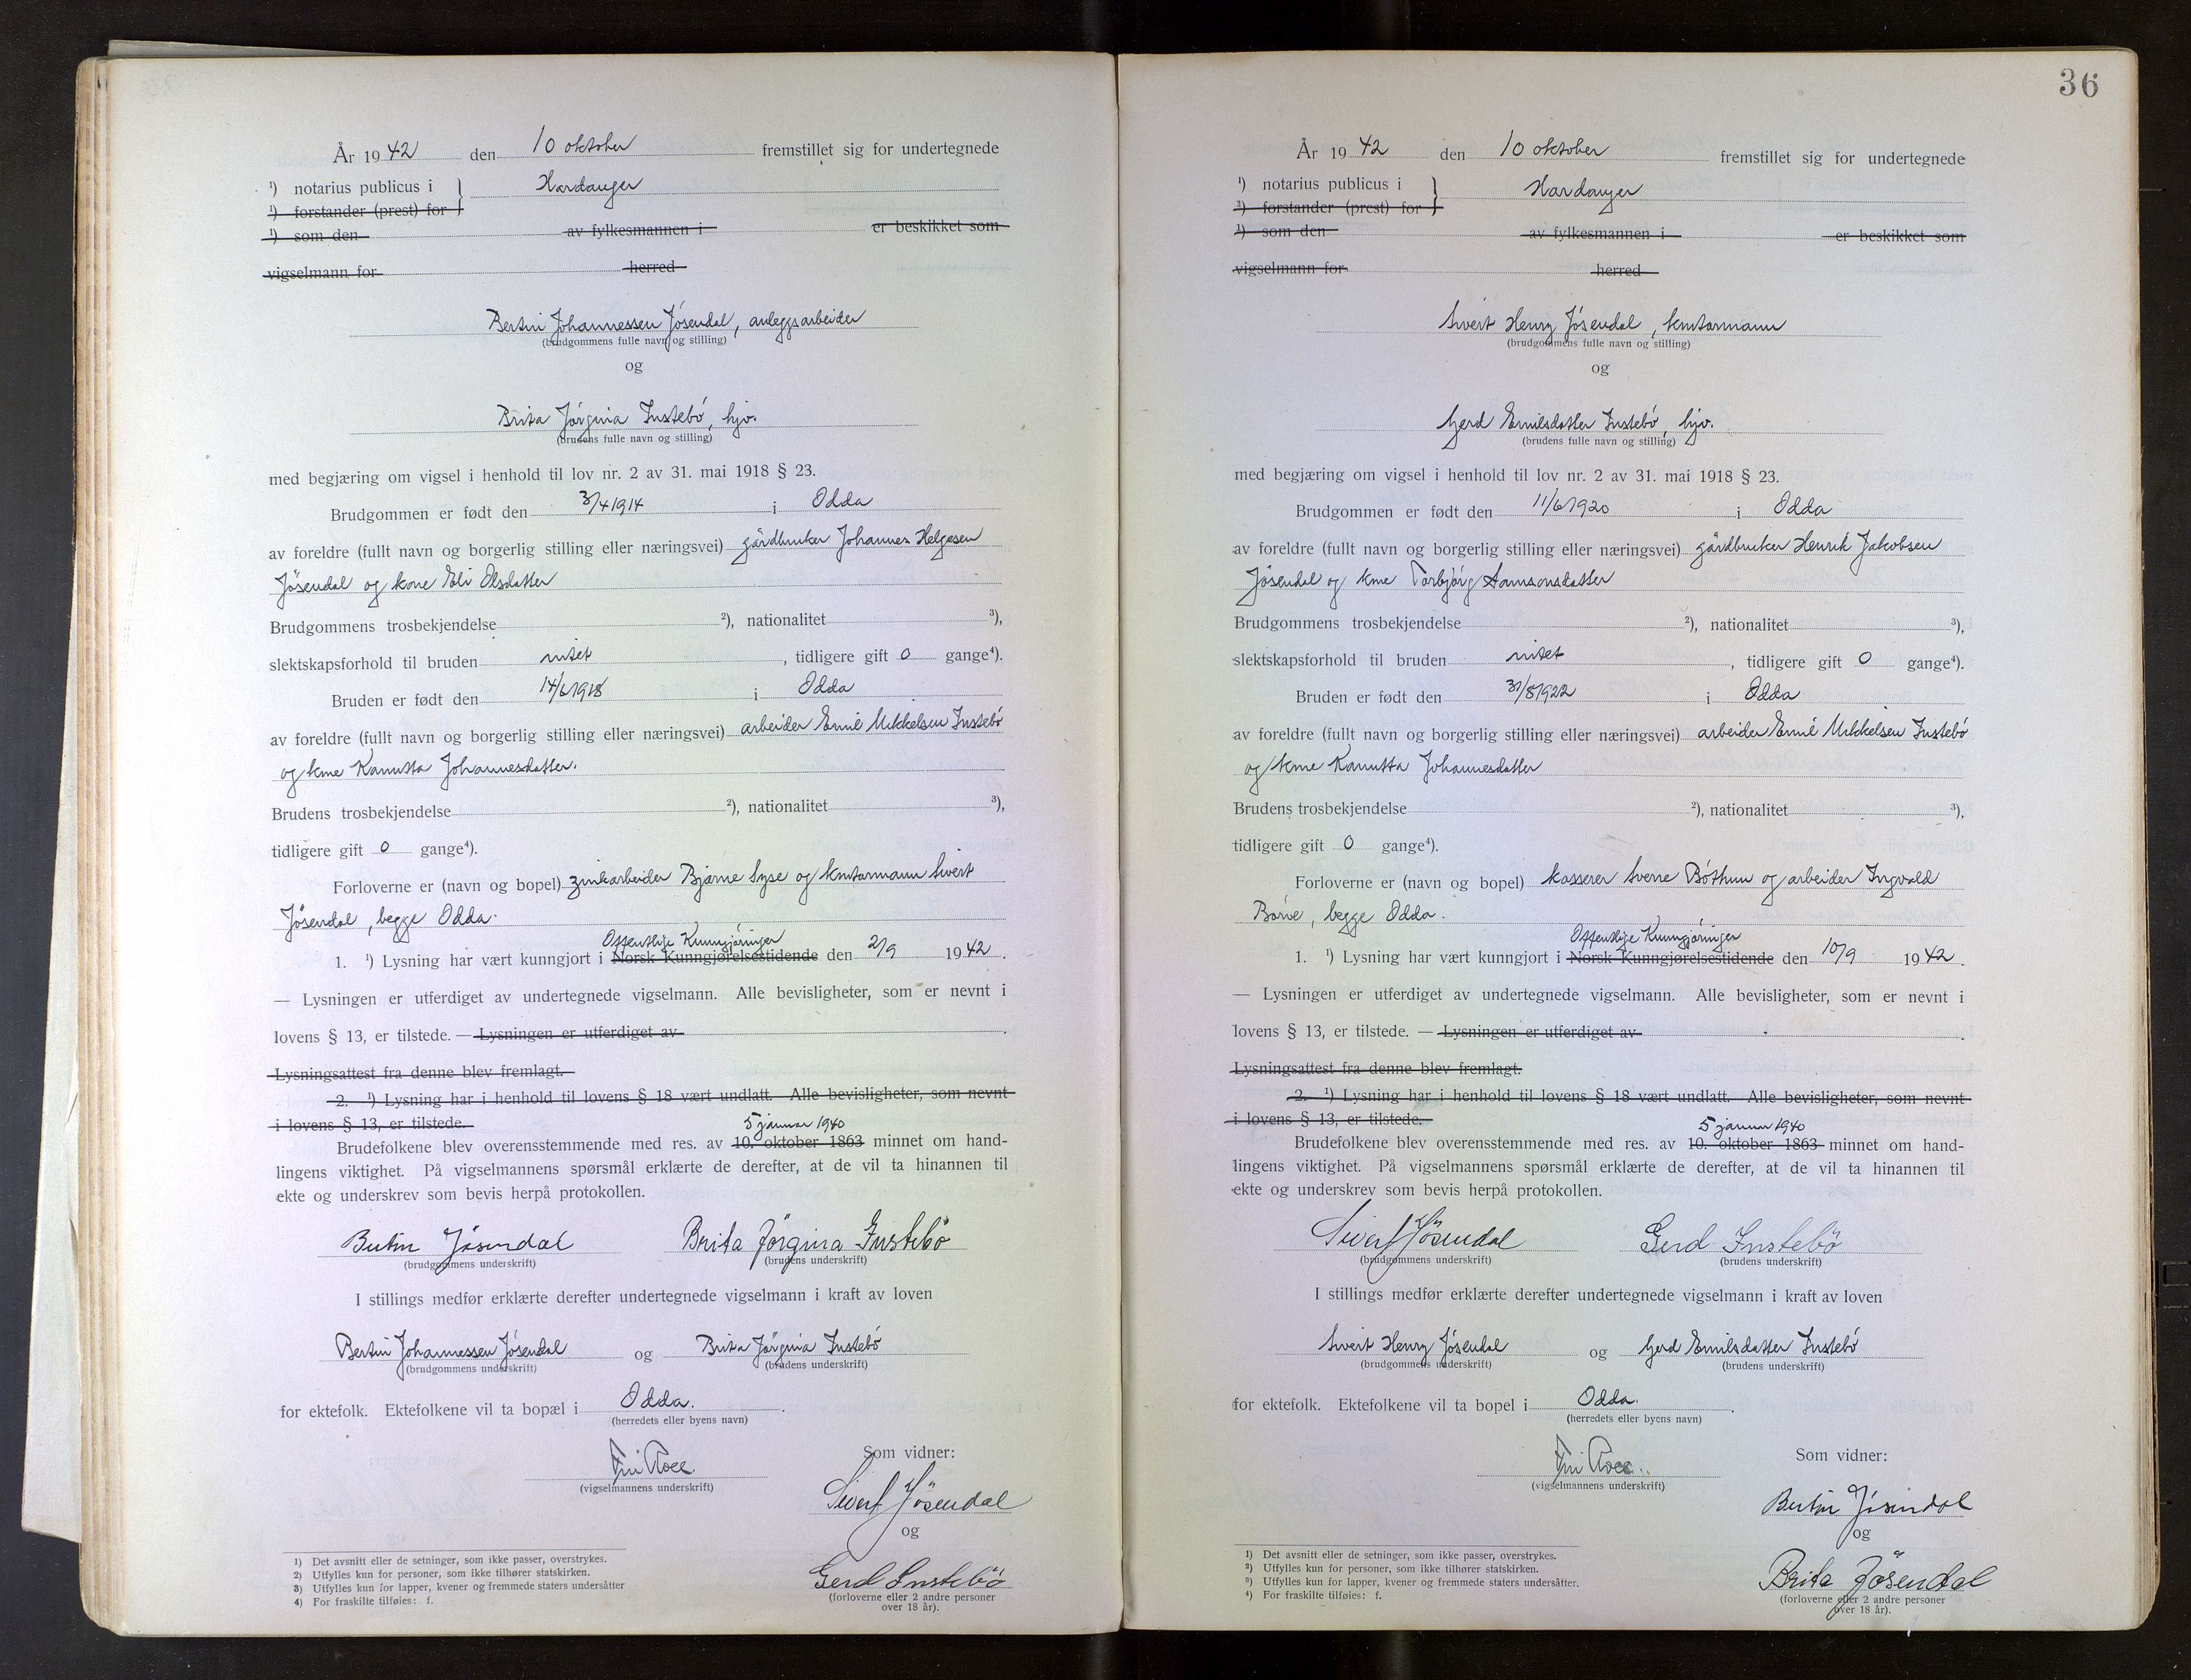 År 1942 den 10 oktober fremstillet sig for undertegnede
¹) notarius publicus i } Hardanger
¹) forstander (prest) for
¹) som den av fylkesmannen i er beskikket som
vigselmann for herred
Bertin Johannessen Jösendal, anleggsarbeider
(brudgommens fulle navn og stilling)
og
Brita Jørgina Instebö, hjv.
(brudens fulle navn og stilling)
med begjæring om vigsel i henhold til lov nr. 2 av 31. mai 1918 § 23.
Brudgommen er født den 3/4 1914 i Odda
av foreldre (fullt navn og borgerlig stilling eller næringsvei) gårdbruker Johannes Helgesen
Jösendal og kone Eli Olsdatter
Brudgommens trosbekjendelse ²), nationalitet ³),
slektskapsforhold til bruden intet, tidligere gift 0 gange⁴).
Bruden er født den 14/6 1918 i Odda
av foreldre (fullt navn og borgerlig stilling eller næringsvei) arbeider Emil Mikkelsen Instebö
og kone Kanutta Johannesdatter.
Brudens trosbekjendelse ²), nationalitet ³),
tidligere gift 0 gange⁴).
Forloverne er (navn og bopel) zinkarbeider Bjarne Syse og kontormann Sivert
Jösendal, begge Odda.
Offentlige Kunngjøringer
1. ¹) Lysning har vært kunngjort i Norsk Kunngjørelsestidende den 2/9 1942.
— Lysningen er utferdiget av undertegnede vigselmann. Alle bevisligheter, som er nevnt i
lovens § 13, er tilstede. — Lysningen er utferdiget av .
Lysningsattest fra denne blev fremlagt.
2. ¹) Lysning har i henhold til lovens § 18 vært undlatt. Alle bevisligheter, som nevnt
i lovens § 13, er tilstede.
5 januar 1940
Brudefolkene blev overensstemmende med res. av 10. oktober 1863 minnet om hand-
lingens viktighet. På vigselmannens spørsmål erklærte de derefter, at de vil ta hinannen til
ekte og underskrev som bevis herpå protokollen.
Bertin Jösendal Brita Jörgina Instebö
(brudgommens underskrift) (brudens underskrift)
I stillings medfør erklærte derefter undertegnede vigselmann i kraft av loven
Bertin Johannessen Jösendal og Brita Jørgina Instebö
(brudgommens underskrift) (brudens underskrift)
for ektefolk. Ektefolkene vil ta bopæl i Odda.
(herredets eller byens navn)
(vigselmannens underskrift)
Som vidner:
Sivert Jösendal
og
Gerd Instebö
(forloverne eller 2 andre personer
over 18 år).
1) Det avsnitt eller de setninger, som ikke passer, overstrykes.
2) Utfylles kun for personer, som ikke tilhører statskirken.
3) Utfylles kun for lapper, kvener og fremmede staters undersåtter
4) For fraskilte tilføies: f.
36
År 1942 den 10 oktober fremstillet sig for undertegnede
¹) notarius publicus i } Hardanger
¹) forstander (prest) for
¹) som den av fylkesmannen i er beskikket som
vigselmann for herred
Sivert Henry Jösendal, kontormann
(brudgommens fulle navn og stilling)
og
Gerd Emilsdatter Instebö, hjv.
(brudens fulle navn og stilling)
med begjæring om vigsel i henhold til lov nr. 2 av 31. mai 1918 § 23.
Brudgommen er født den 11/6 1920 i Odda
av foreldre (fullt navn og borgerlig stilling eller næringsvei) gårdbruker Henrik Jakobsen
Jösendal og kone Torbjörg Samsonsdatter
Brudgommens trosbekjendelse ²), nationalitet ³),
slektskapsforhold til bruden intet, tidligere gift 0 gange⁴).
Bruden er født den 31/8 1922 i Odda
av foreldre (fullt navn og borgerlig stilling eller næringsvei) arbeider Emil Mikkelsen Instebö
og kone Kanutta Johannesdatter
Brudens trosbekjendelse ²), nationalitet ³),
tidligere gift 0 gange⁴).
Forloverne er (navn og bopel) kasserer Sverre Böthun og arbeider Ingvald
Börve, begge Odda.
Offentlige Kunngjøringer
1. ¹) Lysning har vært kunngjort i Norsk Kunngjørelsestidende den 10/9 1942.
— Lysningen er utferdiget av undertegnede vigselmann. Alle bevisligheter, som er nevnt i
lovens § 13, er tilstede. — Lysningen er utferdiget av .
Lysningsattest fra denne blev fremlagt.
2. ¹) Lysning har i henhold til lovens § 18 vært undlatt. Alle bevisligheter, som nevnt
i lovens § 13, er tilstede.
5 januar 1940
Brudefolkene blev overensstemmende med res. av 10. oktober 1863 minnet om hand-
lingens viktighet. På vigselmannens spørsmål erklærte de derefter, at de vil ta hinannen til
ekte og underskrev som bevis herpå protokollen.
Sivert Jösendal Gerd Instebö
(brudgommens underskrift) (brudens underskrift)
I stillings medfør erklærte derefter undertegnede vigselmann i kraft av loven
Sivert Henry Jösendal og Gerd Emilsdatter Instebö
(brudgommens underskrift) (brudens underskrift)
for ektefolk. Ektefolkene vil ta bopel i Odda.
(herredets eller byens navn)
(vigselmannens underskrift)
Som vidner:
Bertin Jösendal
og
Brita Jösendal
(forloverne eller 2 andre personer
over 18 år).
1) Det avsnitt eller de setninger, som ikke passer, overstrykes.
2) Utfylles kun for personer, som ikke tilhører statskirken.
3) Utfylles kun for lapper, kvener og fremmede staters undersåtter.
4) For fraskilte tilføies: f.